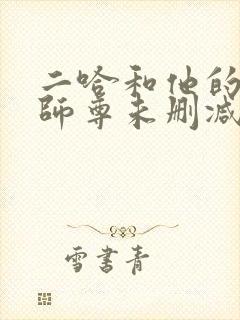 二哈和他的
師尊未删减
雪書青